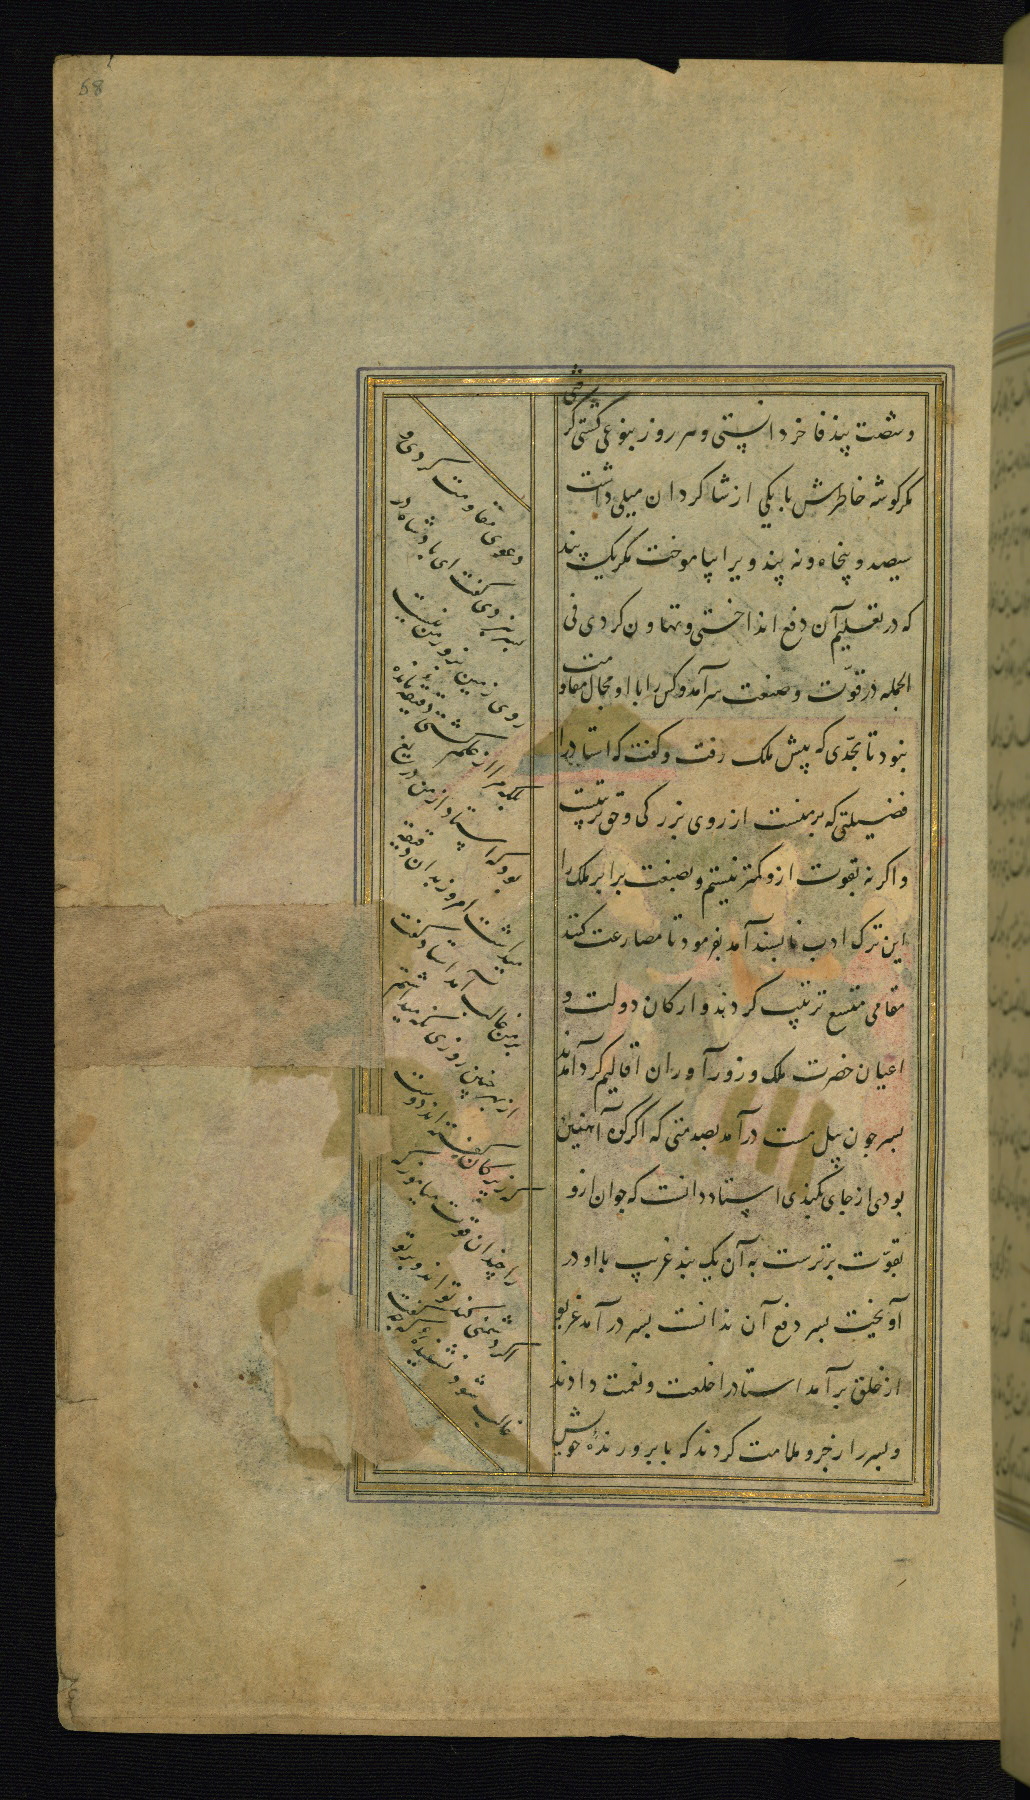 58
و شصت بند فاخر دانستی و هر روز بنوعی کشتی گرفتی
مکر کوشه خاطرش با یکی از شاکردان میلی داشت
سیصد و پنجاه و نه بند ویرا بیاموخت مکر یک بند
که در تعلیم آن دفع انداختی و تهاون کردی فی
الجمله در قوّت و صنعت سرآمد و کس را با او مجال مقاومت
نبود تا بحدّی که پیش ملک رفت و کفت که استاد را
فضیلتی که بر منست از روی بزرکی و حق تربیت
و اکر نه بقوت ازو کمتر نیستم و بصنعت برابر ملک را
این ترک ادب ناپسند آمد بفرمود تا مصارعت کنند
مقامی متسع ترتیب کردند و ارکان دولت و
اعیان حضرت ملک و زورآوران اقالیم کرد آمدند
پسر چون پیل مست درآمد بصدمتی که اکر کوه آهنین
بودی از جای بکندی استاد دانست که جوان ازو
بقوّت برترست به آن یک بند غریب با او در
آویخت پسر دفع آن ندانست بسر درآمد غریو
از خلق برآمد استاد را خلعت و نعمت دادند
و پسر را زجر و ملامت کردند که با پرورندهٔ خویش
دعوی مقاومت کردی و
بسر نبردی کفت ای پادشاه در
روی زمین بزور من نیست
بلکه مرا از علم کشتی دقیقه مانده
بود که استاد از من دریغ
میداشت امروز بدان دقیقه
بر من غالب آمد استاد کفت
از بهر چنین روزی نکه میداشتم
که زیرکان کفته اند دوست
را چندان قوت مده که
اکر دشمنی کند تواند و بر تو
غالب شود نشنیدهٔ که چه کفت